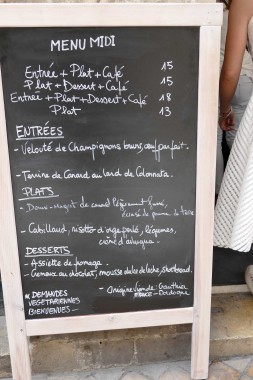 MENU MIDI
Entrée + Plat + Café 15
Plat + Dessert + Café 15
Entrée + Plat + Dessert + Café 18
Plat 13
ENTRÉES
- Velouté de Champignons bruns, œuf parfait.
- Terrine de Canard au lard de Colonnata.
PLATS
- Demi-magret de canard légèrement fumé,
écrasé de pomme de terre
- Cabillaud, risotto d'orge perlé, légumes,
crème d'
DESSERTS
- Assiette de fromage.
- Cremeux au chocolat, mousse dulce de leche,
* DEMANDES
VEGETARIENNES
BIENVENUES -
- Origine viande: Gauthier
FRANCE - Dordogne